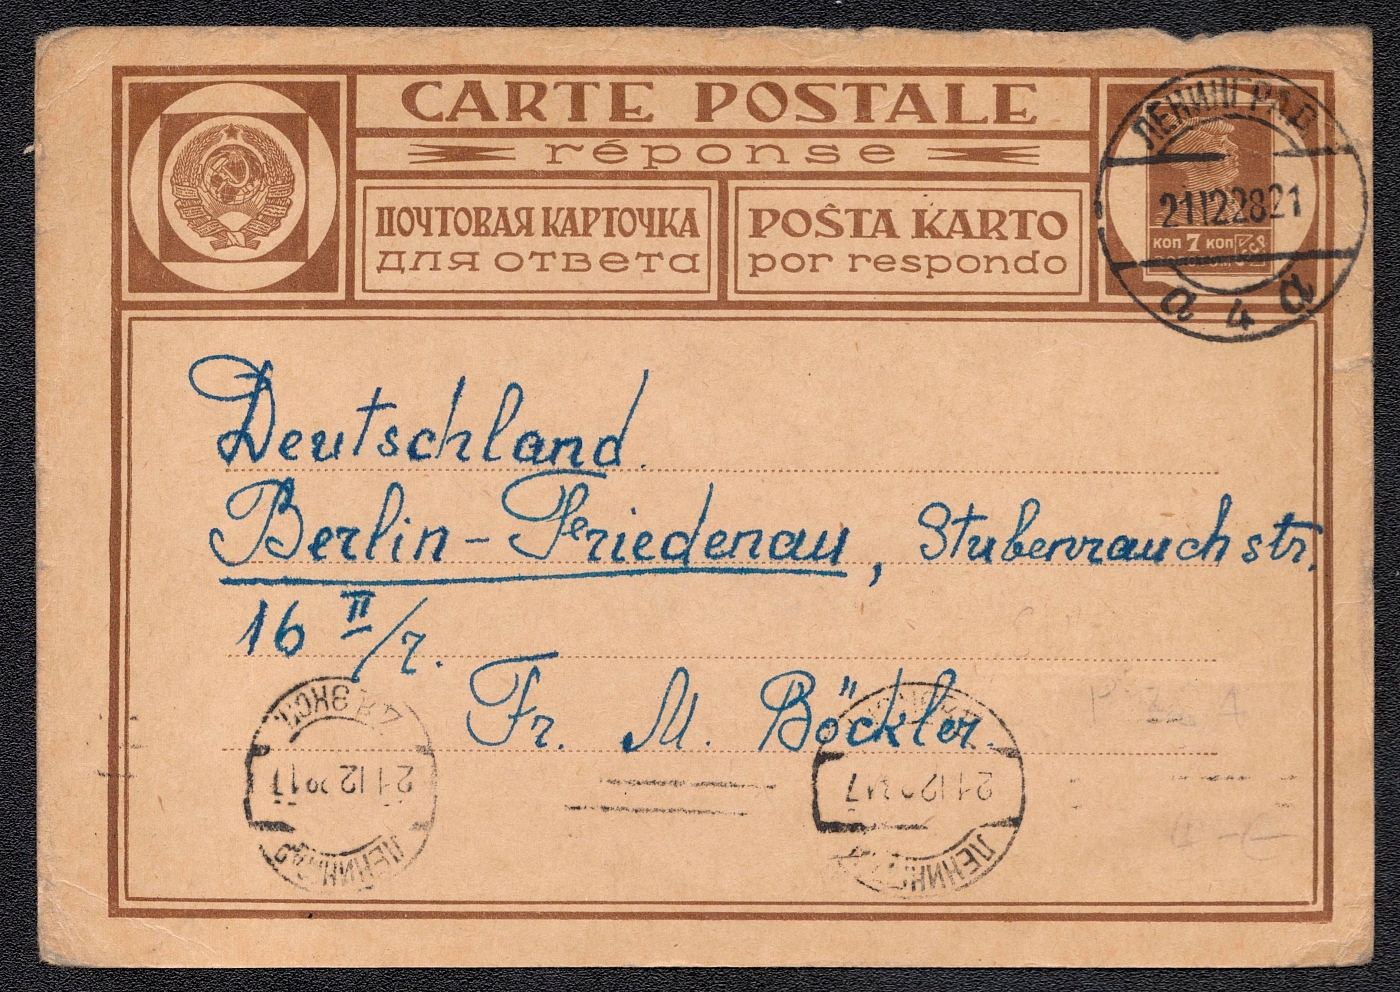 CARTE POSTALE
réponse
ПОЧТОВАЯ КАРТОЧКА
для ответа
POŜTA KARTO
por respondo
КОП 7 КОП
ЛЕНИНГРАД
21 12 28 21
а 4 а
Deutschland.
Berlin-Friedenau, Stubenrauchstr.
16 II/r.
Fr. M. Böckler.
ЭКСП.
21 12 28 17
ЛЕНИНГРАД
21 12 28 17